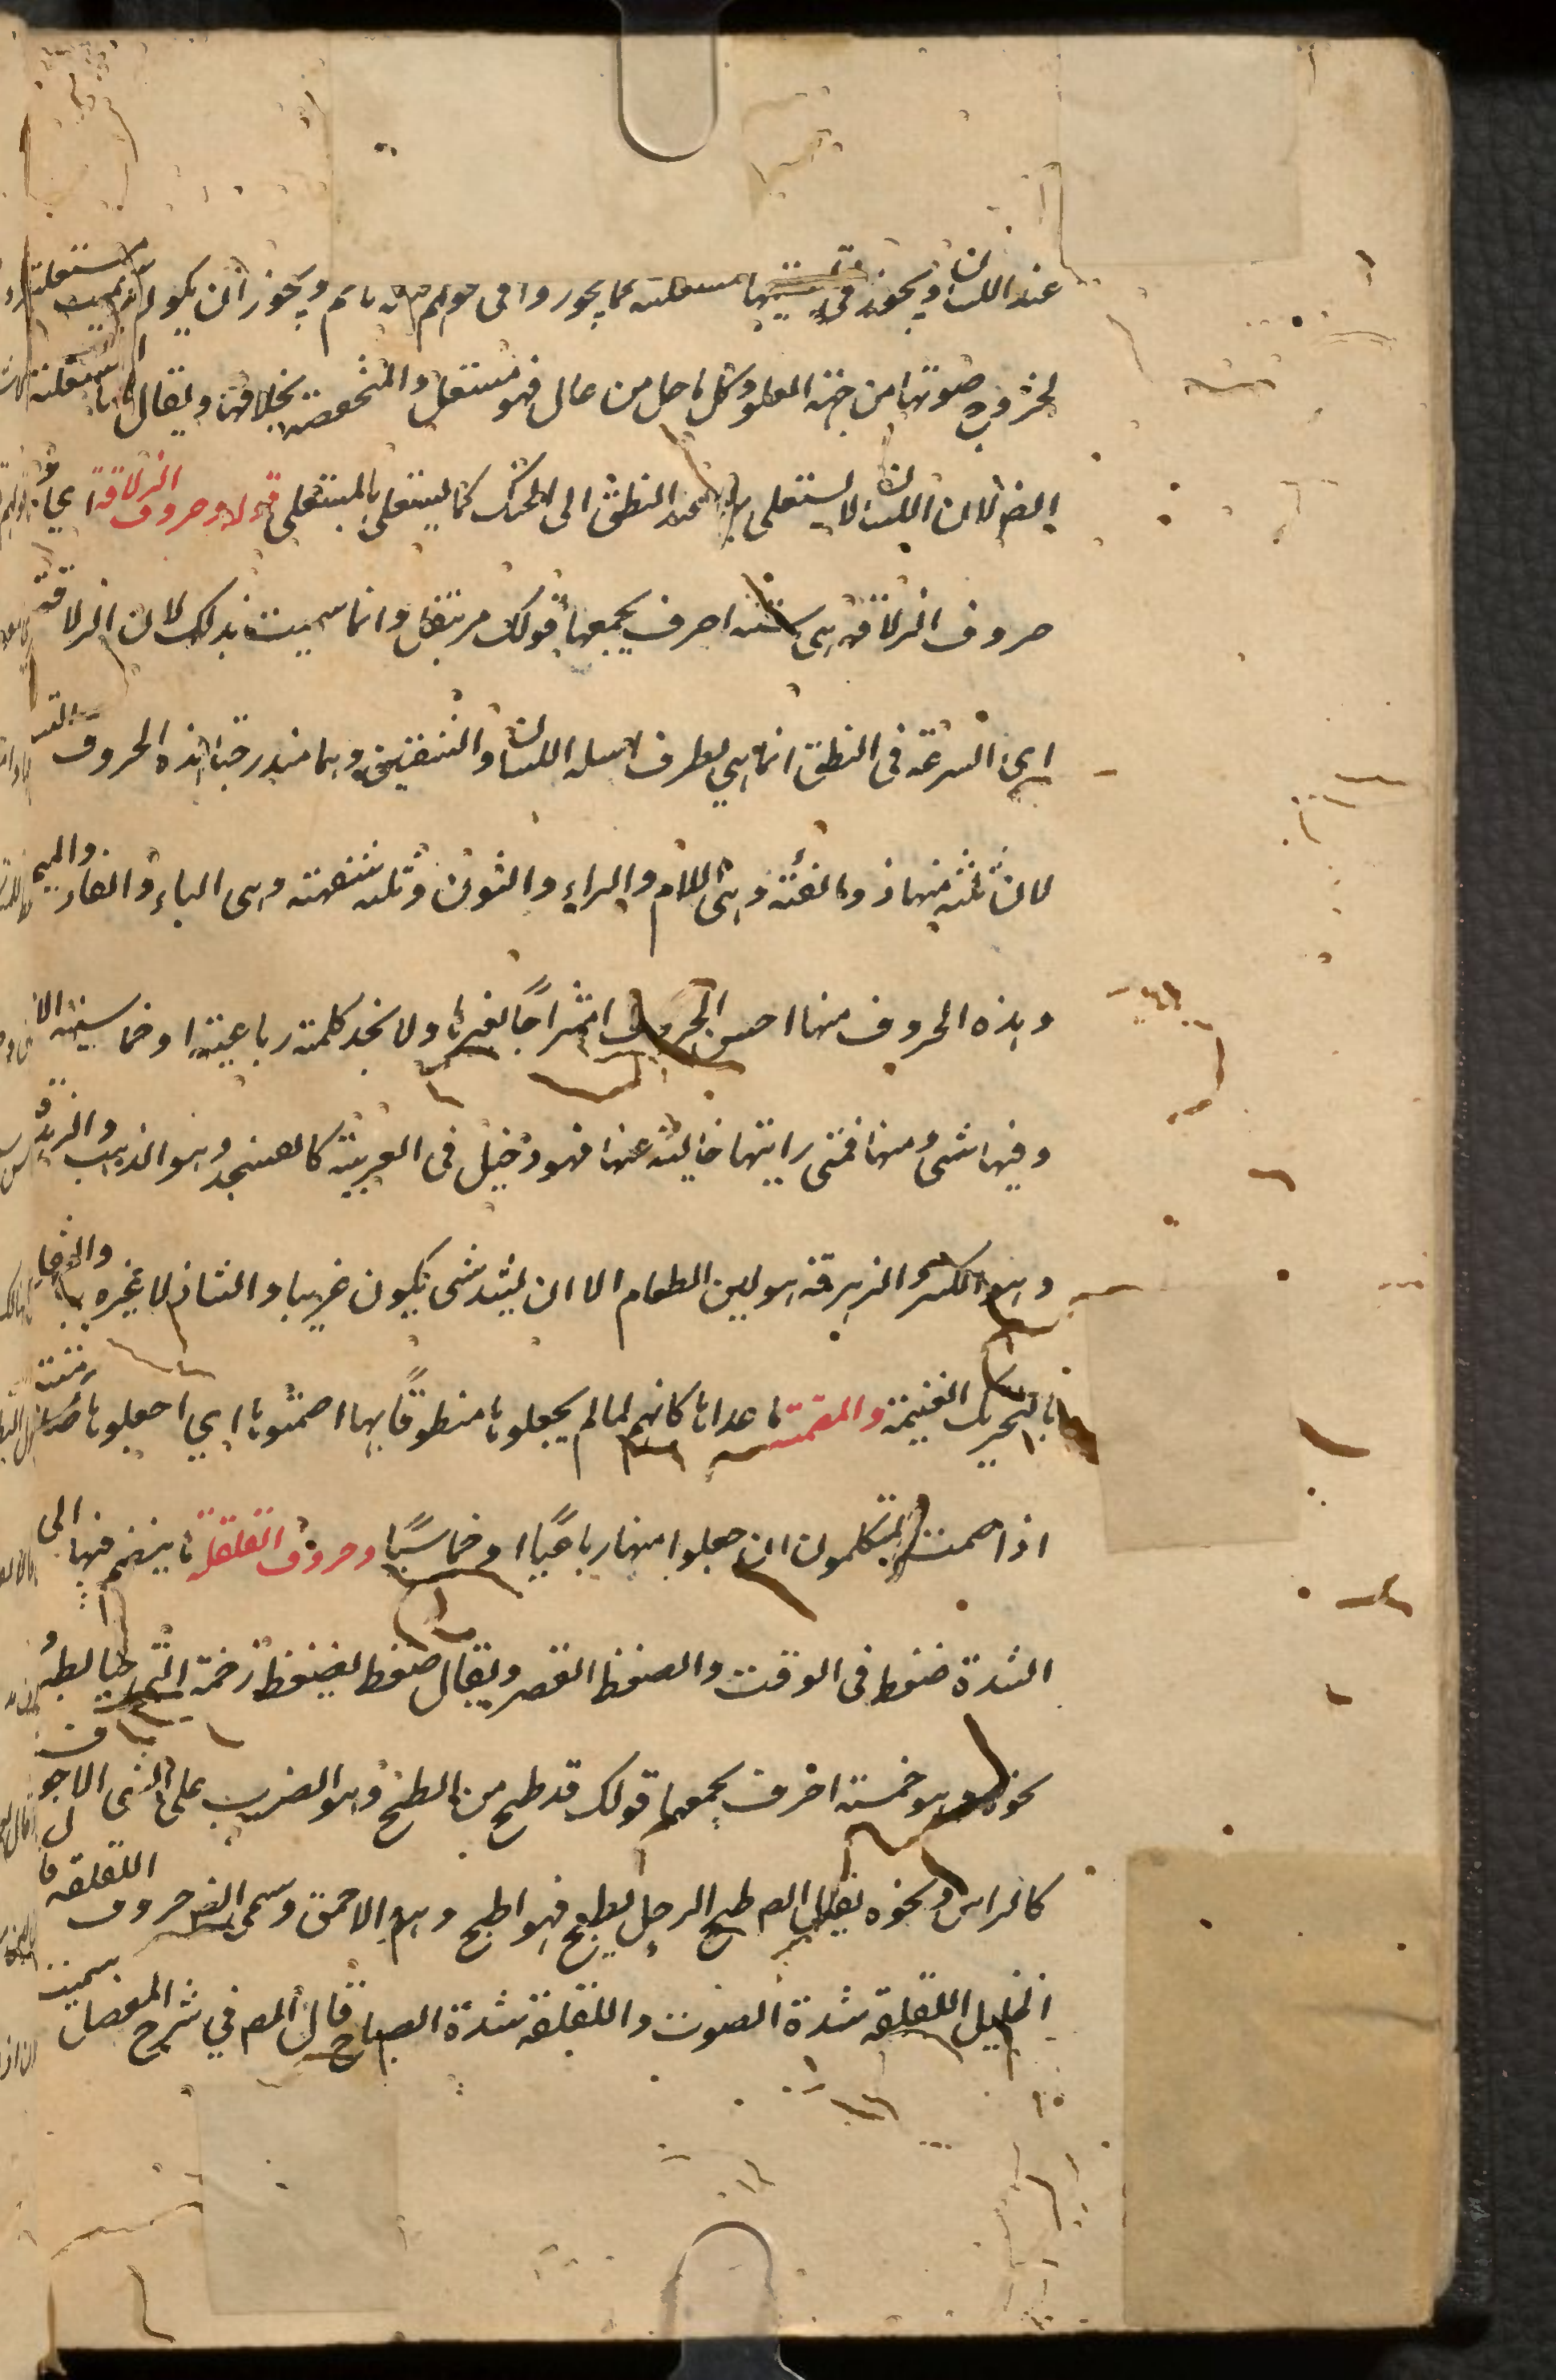 عند اللسان ويجوز في تسميتها مستعلية كما يجوزوا في قولهم ليل نائم ويجوز ان يكون سميت مستعلية
لخروج صوتها من جهة العلو وكل ما حل من عال فهو مستعل والمنخفضة بخلافها ويقال لها المستفلة
ايضا لان اللسان لا يستعلي بها عند النطق الى الحنك كما يستعلي بالمستعلي قوله وحروف الذلاقة اي
حروف الذلاقة هي ستة احرف يجمعها قولك مر بنفل وانما سميت بذلك لان الذلاقة
اي السرعة في النطق انما هي بطرف اسلة اللسان والشفتين وهما مدرجتا هذه الحروف الستة
لان ثلثة منها ذولقية وهي اللام والراء والنون وثلثة شفهية وهي الباء والفاء والميم
وهذه الحروف منها احسن الحروف امتزاجا بغيرها ولا تجد كلمة رباعية او خماسية الا
وفيها شيء منها فمتى رايتها خالية عنها فهو دخيل في العربية كالعسجد وهو الذهب والزهزقة
وهو الكسر والزهرقة هو لين الطعام الا ان يشد شيء يكون غريبا والشاذ لا غيره
بالتحريك الغنيمة والمصمتة ما عداها كانهم لما لم يجعلوها منطوقا بها اصمتوها اي اجعلوها صامتة
اذا صمت المتكلمون ان جعلوا منها رباعيا او خماسيا وحروف القلقلة ما ينضم فيها الى
الشدة ضغط في الوقف والضغط العصر ويقال ضغط يضغط زحمه الى حايط
نحوه وهو خمسة احرف يجمعها قولك قد طبج من الطبج وهو الضرب على الشيء الاجوف
كالراس ونحوه يقال الم طبج الرجل يطبج فهو اطبج وهو الاحمق وسمي ايضا حروف اللقلقة قال
الخليل اللقلقة شدة الصوت واللقلقة شدة الصياح قال المص في شرح المفصل سميت